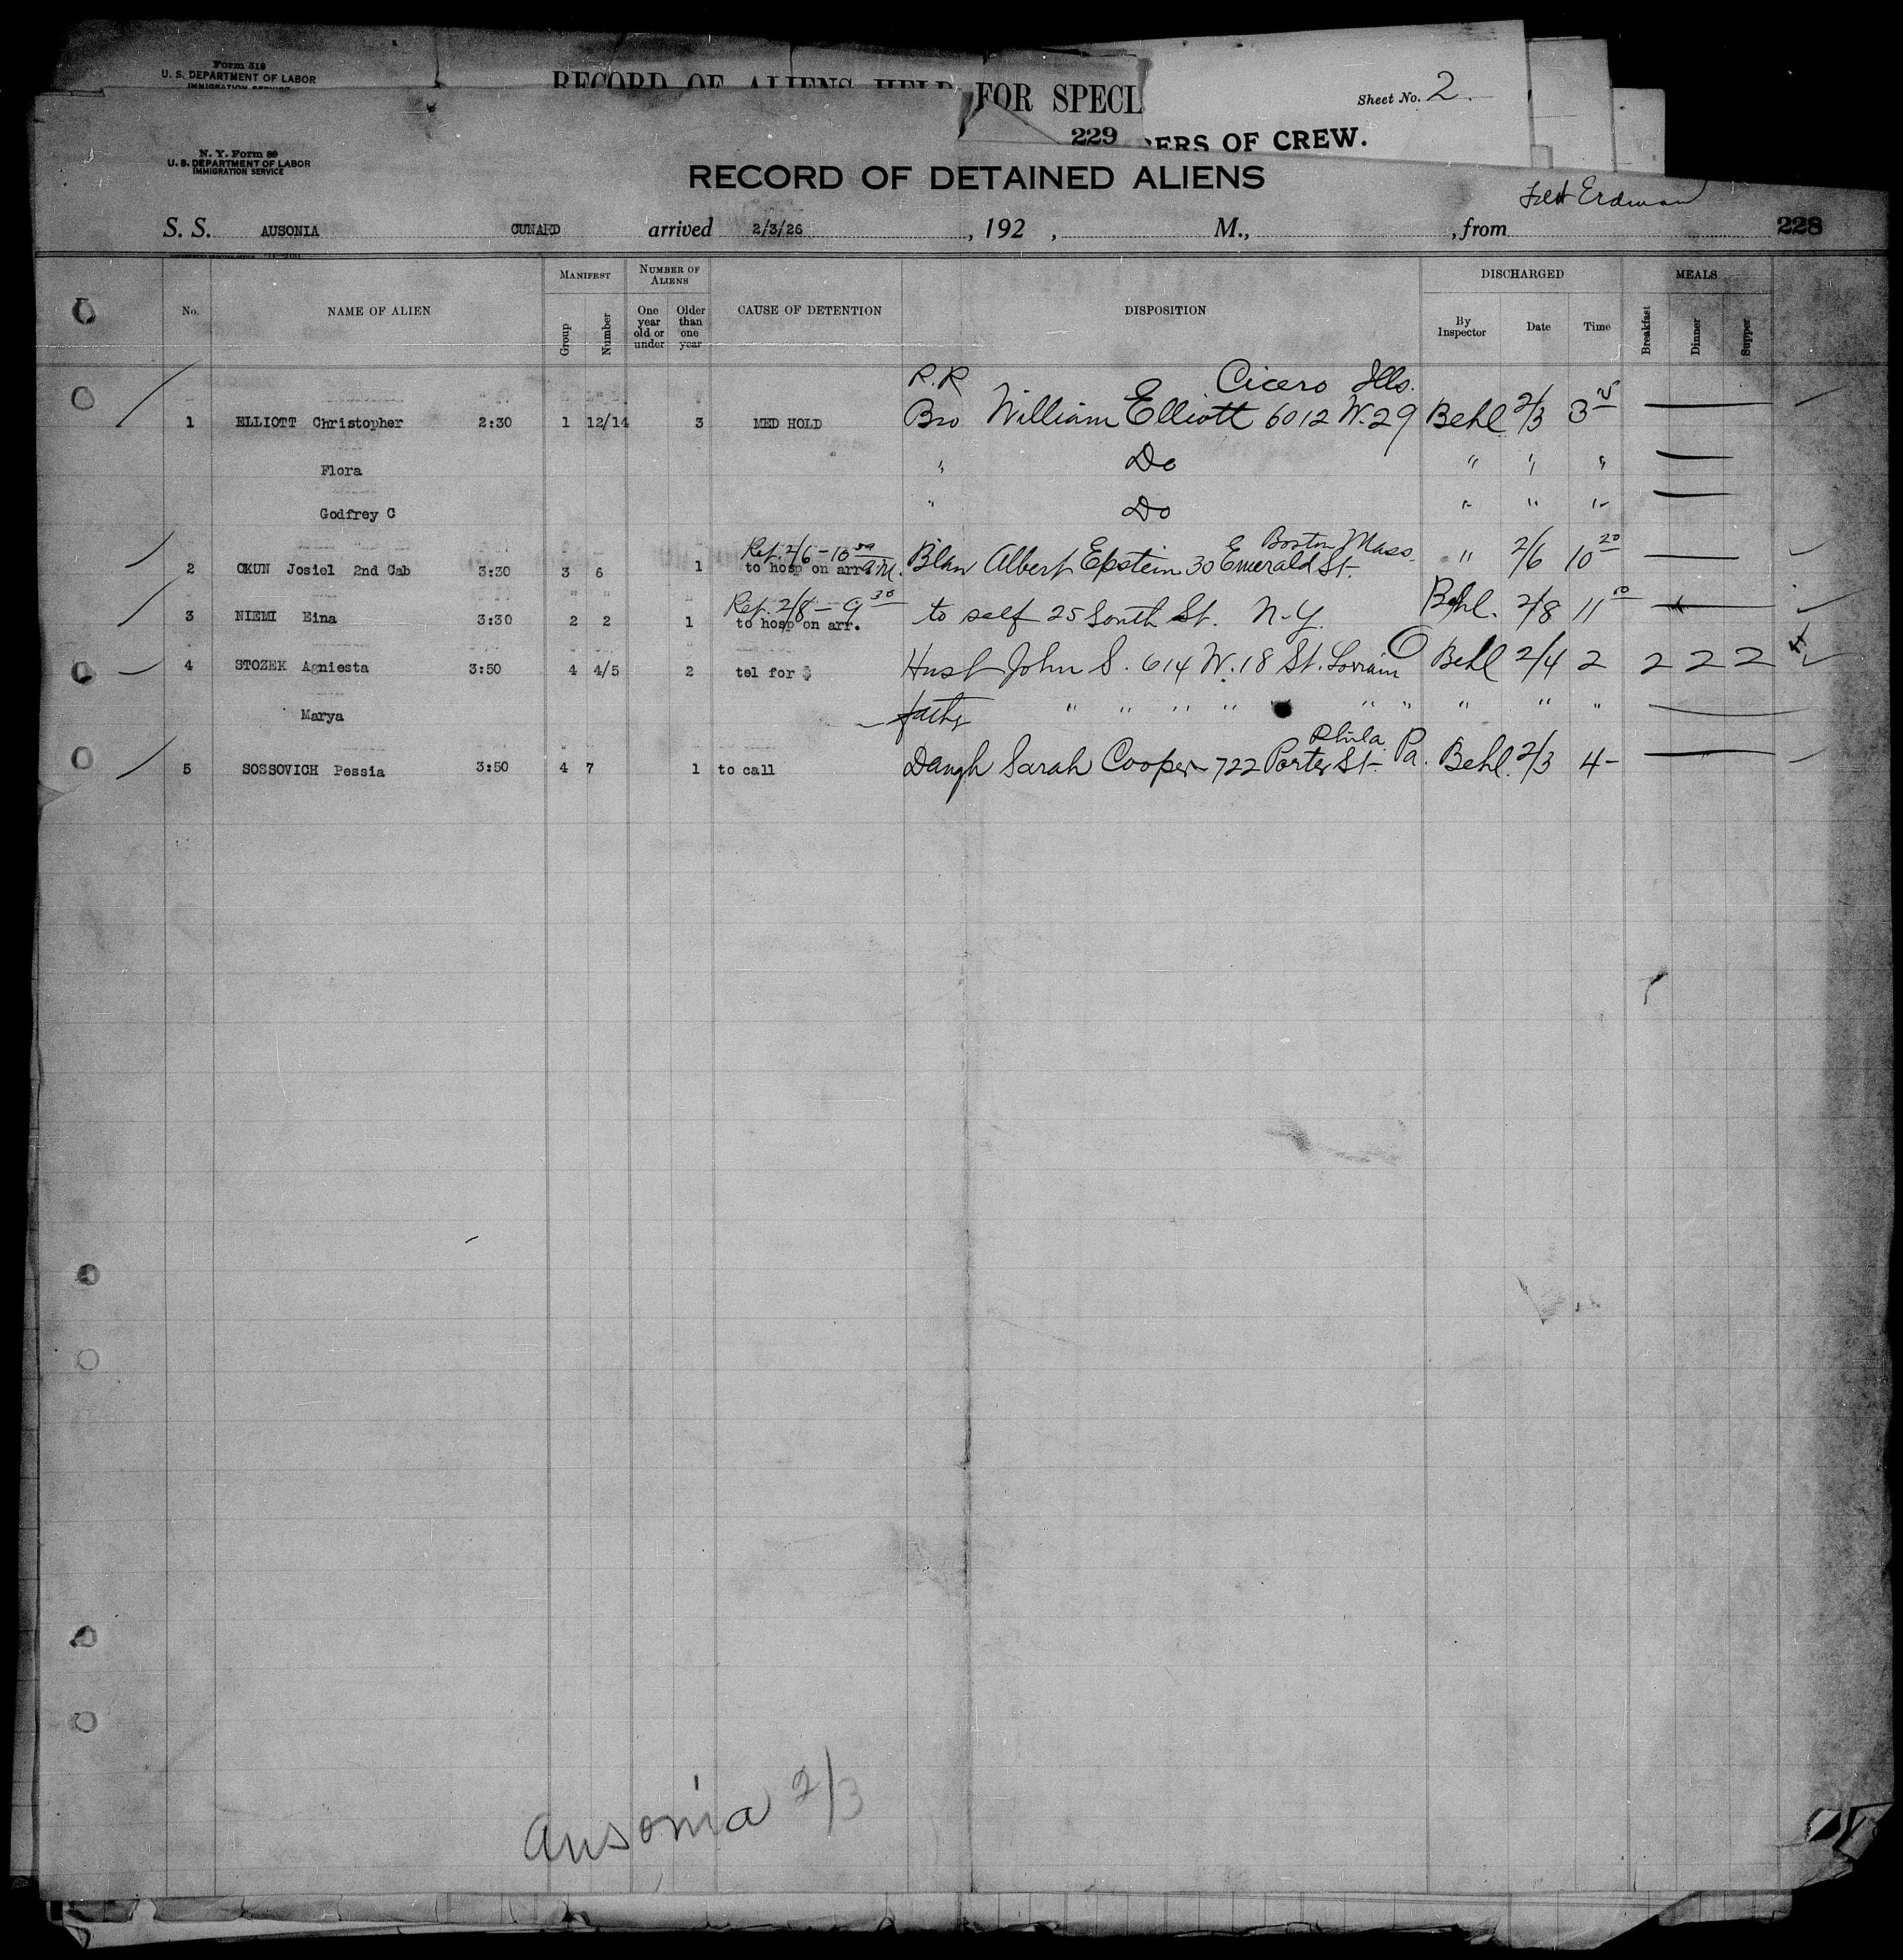 Form 318
U. S. DEPARTMENT OF LABOR
IMMIGRATION SERVICE
RECORD OF ALIENS HELD FOR SPECI
Sheet No. 2.
229
BERS OF CREW.
N. Y. Form 89
U. S. DEPARTMENT OF LABOR
IMMIGRATION SERVICE
RECORD OF DETAINED ALIENS
Erdman
S. S. AUSONIA CUNARD arrived 2/3/26, 192 , M., , from 228
No. NAME OF ALIEN MANIFEST Group Number NUMBER OF ALIENS One year old or under Older than one year CAUSE OF DETENTION DISPOSITION DISCHARGED By Inspector Date Time MEALS Breakfast Dinner Supper
R.R Cicero Ills.
1 ELLIOTT Christopher 2:30 1 12/14 3 MED HOLD Bro William Elliott 6012 W. 29 Behl 2/3 3
Flora " Do " " "
Godfrey C " Do " " "
Ret. 2/6 - 10 50 A.M. E Boston Mass.
2 OKUN Josiel 2nd Cab 3:30 3 6 1 to hosp on arr. Blaw Albert Epstein 30 Emerald St. " 2/6 10 20
Ret. 2/8 - 9 30
3 NIEMI Eina 3:30 2 2 1 to hosp on arr. to self 25 South St. N.Y. Behl. 2/8 11 10
4 STOZEK Agniesta 3:50 4 4/5 2 tel for $ Husb John S. 614 W. 18 St. Lorrain O Behl 2/4 2 2 2 2
Marya fathr " " " " " " " " " "
Phila
5 SOSSOVICH Pessia 3:50 4 7 1 to call Daugh Sarah Cooper 722 Porter St. Pa. Behl. 2/3 4 -
Ausonia 2/3